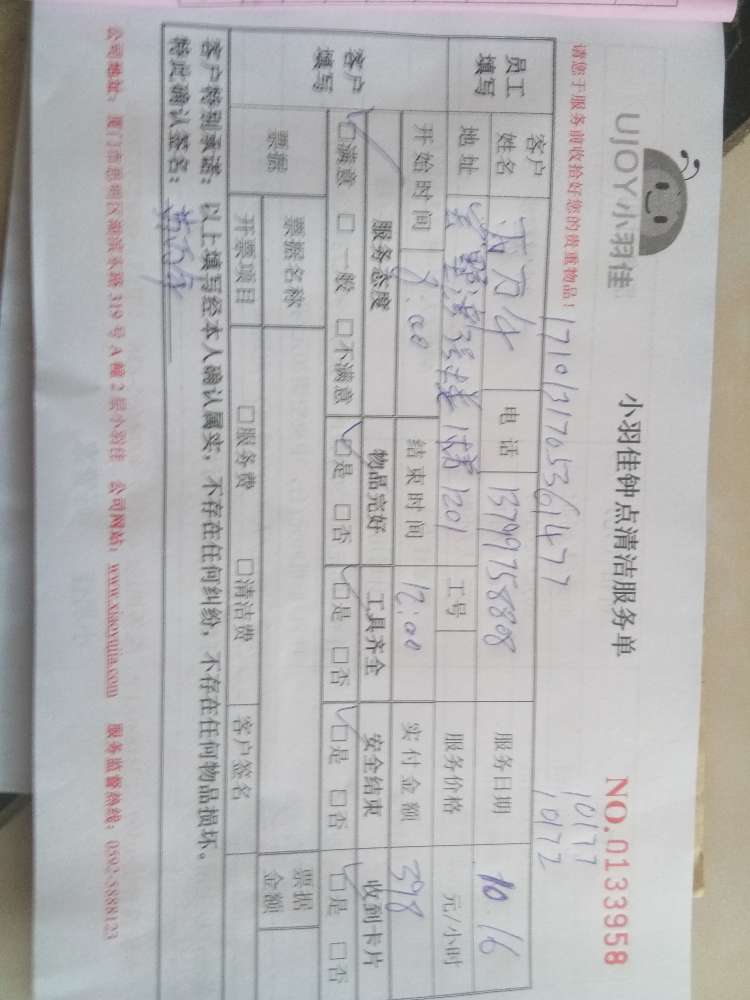 UJOY小羽佳
小羽佳钟点清洁服务单
NO.0133958
请您于服务前收拾好您的贵重物品!
1710131705361477
10177
10172
员工填写
客户姓名
电话 13799758808
服务日期 10.16
地址
201
工号
服务价格 元/小时
开始时间 9:00
结束时间 12:00
实付金额 398
客户填写
服务态度 物品完好 工具齐全 安全结束 收到卡片
□满意 □一般 □不满意 □是 □否 □是 □否 □是 □否 □是 □否
票据
票据名称
票据金额
开票项目 □服务费 □清洁费 客户签名
客户特别承诺:以上填写经本人确认属实,不存在任何纠纷,不存在任何物品损坏。
特此确认签名:
公司地址:厦门市思明区湖滨东路319号A幢2层小羽佳 公司网站:www.xiaoyujia.com 服务监督热线:0592-5888123